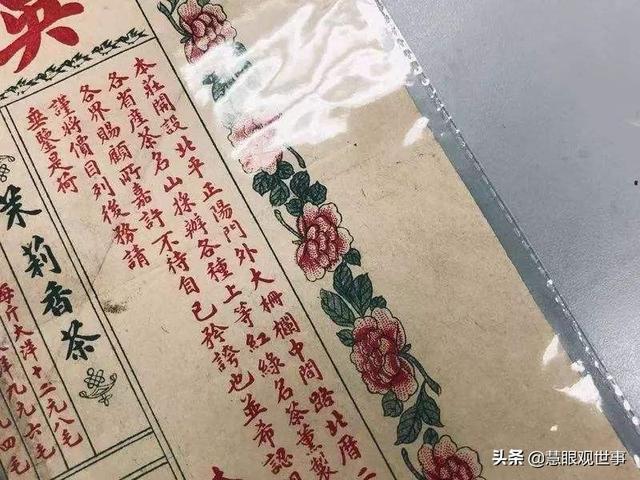 吳
本莊開設北平正陽門外大柵欄中間路北曆二
各省產茶名山採辦各種上等紅綠名茶薰製
各界賜顧所嘉許不待自己矜誇也並希認
謹將價目列後務請
垂鑒是荷
茉莉香茶
每斤大洋十二元八毛
九元六毛
四毛
头条 @慧眼观世事